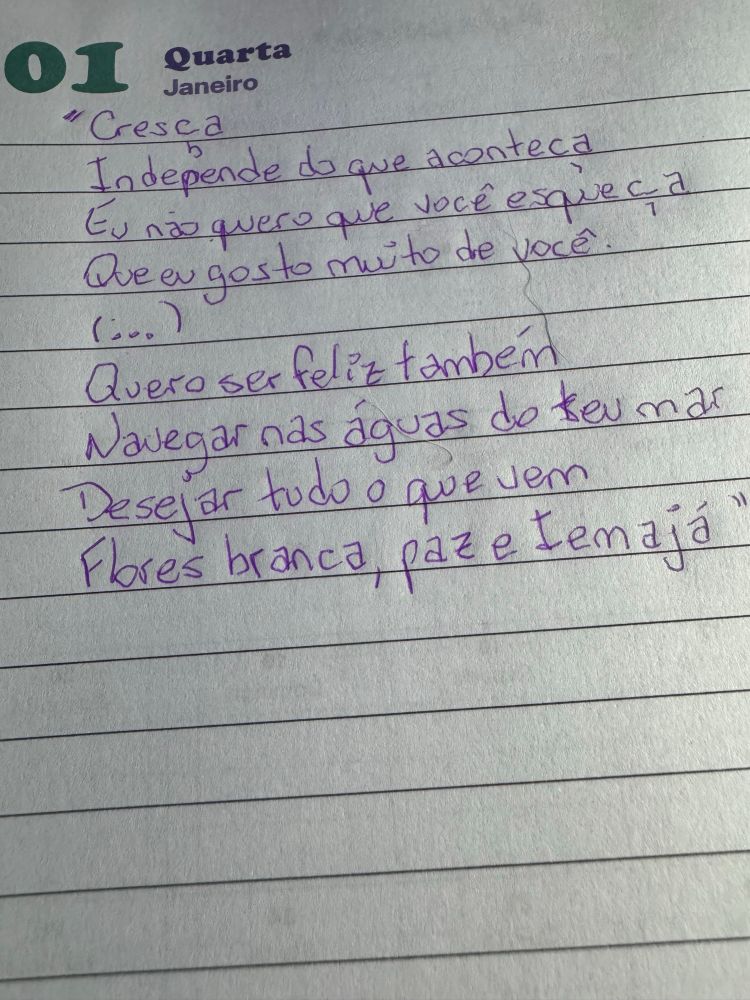 01 Quarta
Janeiro
"Cresça
Independe do que aconteca
Eu não quero que você esqueça
Que eu gosto muito de você.
(...)
Quero ser feliz também
Navegar nas águas do teu mar
Desejar tudo o que vem
Flores branca, paz e Iemajá"